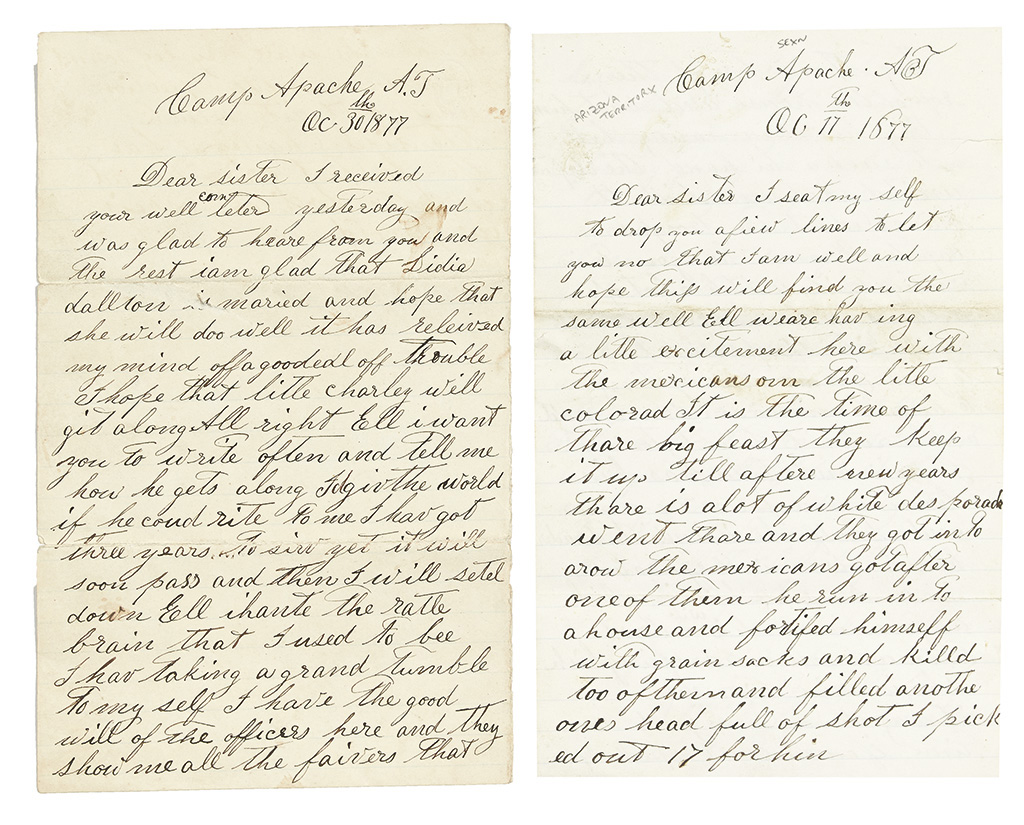 Camp Apache A.T
Oc 30th 1877
Dear sister I received
your well com leter yesterday and
was glad to heare from you and
the rest iam glad that Lidia
dallton is maried and hope that
she will doo well it has releived
my mind off a goodeal off trouble
I hope that litle charley will
git along All right Ell i want
you to write often and tell me
how he gets along Id giv the world
if he coud rite to me I hav got
three years to sirv yet it will
soon pass and then I will setel
down Ell ihante the ratle
brain that I used to bee
I hav taking a grand tumble
to my self I have the good
will of the officers here and they
show me all the faivers that
SEXN
Camp Apache. AT
ARIZONA
TERRITORY
Oc 17th 1877
Dear sister I seat my self
to drop you afiew lines to let
you no that I am well and
hope thiss will find you the
same well Ell weare hav ing
a litle excitement here with
the mexicans om the litle
colorad It is the time of
thare big feast they keep
it up till aftere new years
thare is alot of white des porade
went thare and they got in to
arow the mexicans got after
one of them he run in to
a house and fortifed himseff
with grain sacks and killd
too of them and filled anothe
ones head full of shot I pick
ed out 17 for hin